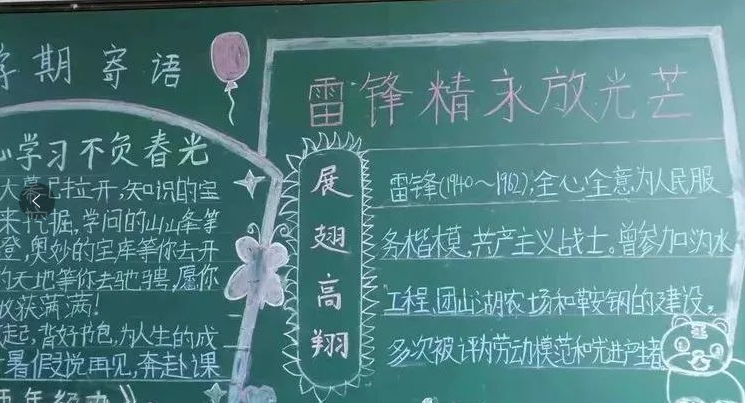 学期寄语
心学习不负春光
大幕已拉开,知识的宝
来挖掘,学问的山山峰等
登,奥妙的宝库等你去开
的天地等你去驰骋,愿你
收获满满!
起,背好书包,为人生的成
暑假说再见,奔赴课
年级办》
雷锋精永放光芒
展翅高翔
雷锋(1940～1962),全心全意为人民服
务楷模,共产主义战士。曾参加沩水
工程,团山湖农场和鞍钢的建设,
多次被评为劳动模范和先进产者
王